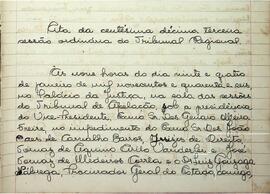 Ata da centésima décima terceira
sessão ordinária do Tribunal Regional.
Às nove horas do dia vinte e quatro
de janeiro de mil novecentos e quarenta e seis
no Palácio da Justiça, na sala das sessões
do Tribunal de Apelação, sob a presidência
do Vice-Presidente, Exmo Sr. Des. Genaro
Freire, no impedimento do Exmo Sr. Des. João
Paes de Carvalho Barros, Juízes de Direito,
Tomaz de Aquino Cirilo Wanderley e José
Tomaz de Medeiros Corrêa e o Dr. Luis
Nóbrega, Procurador Geral do Estado, comigo